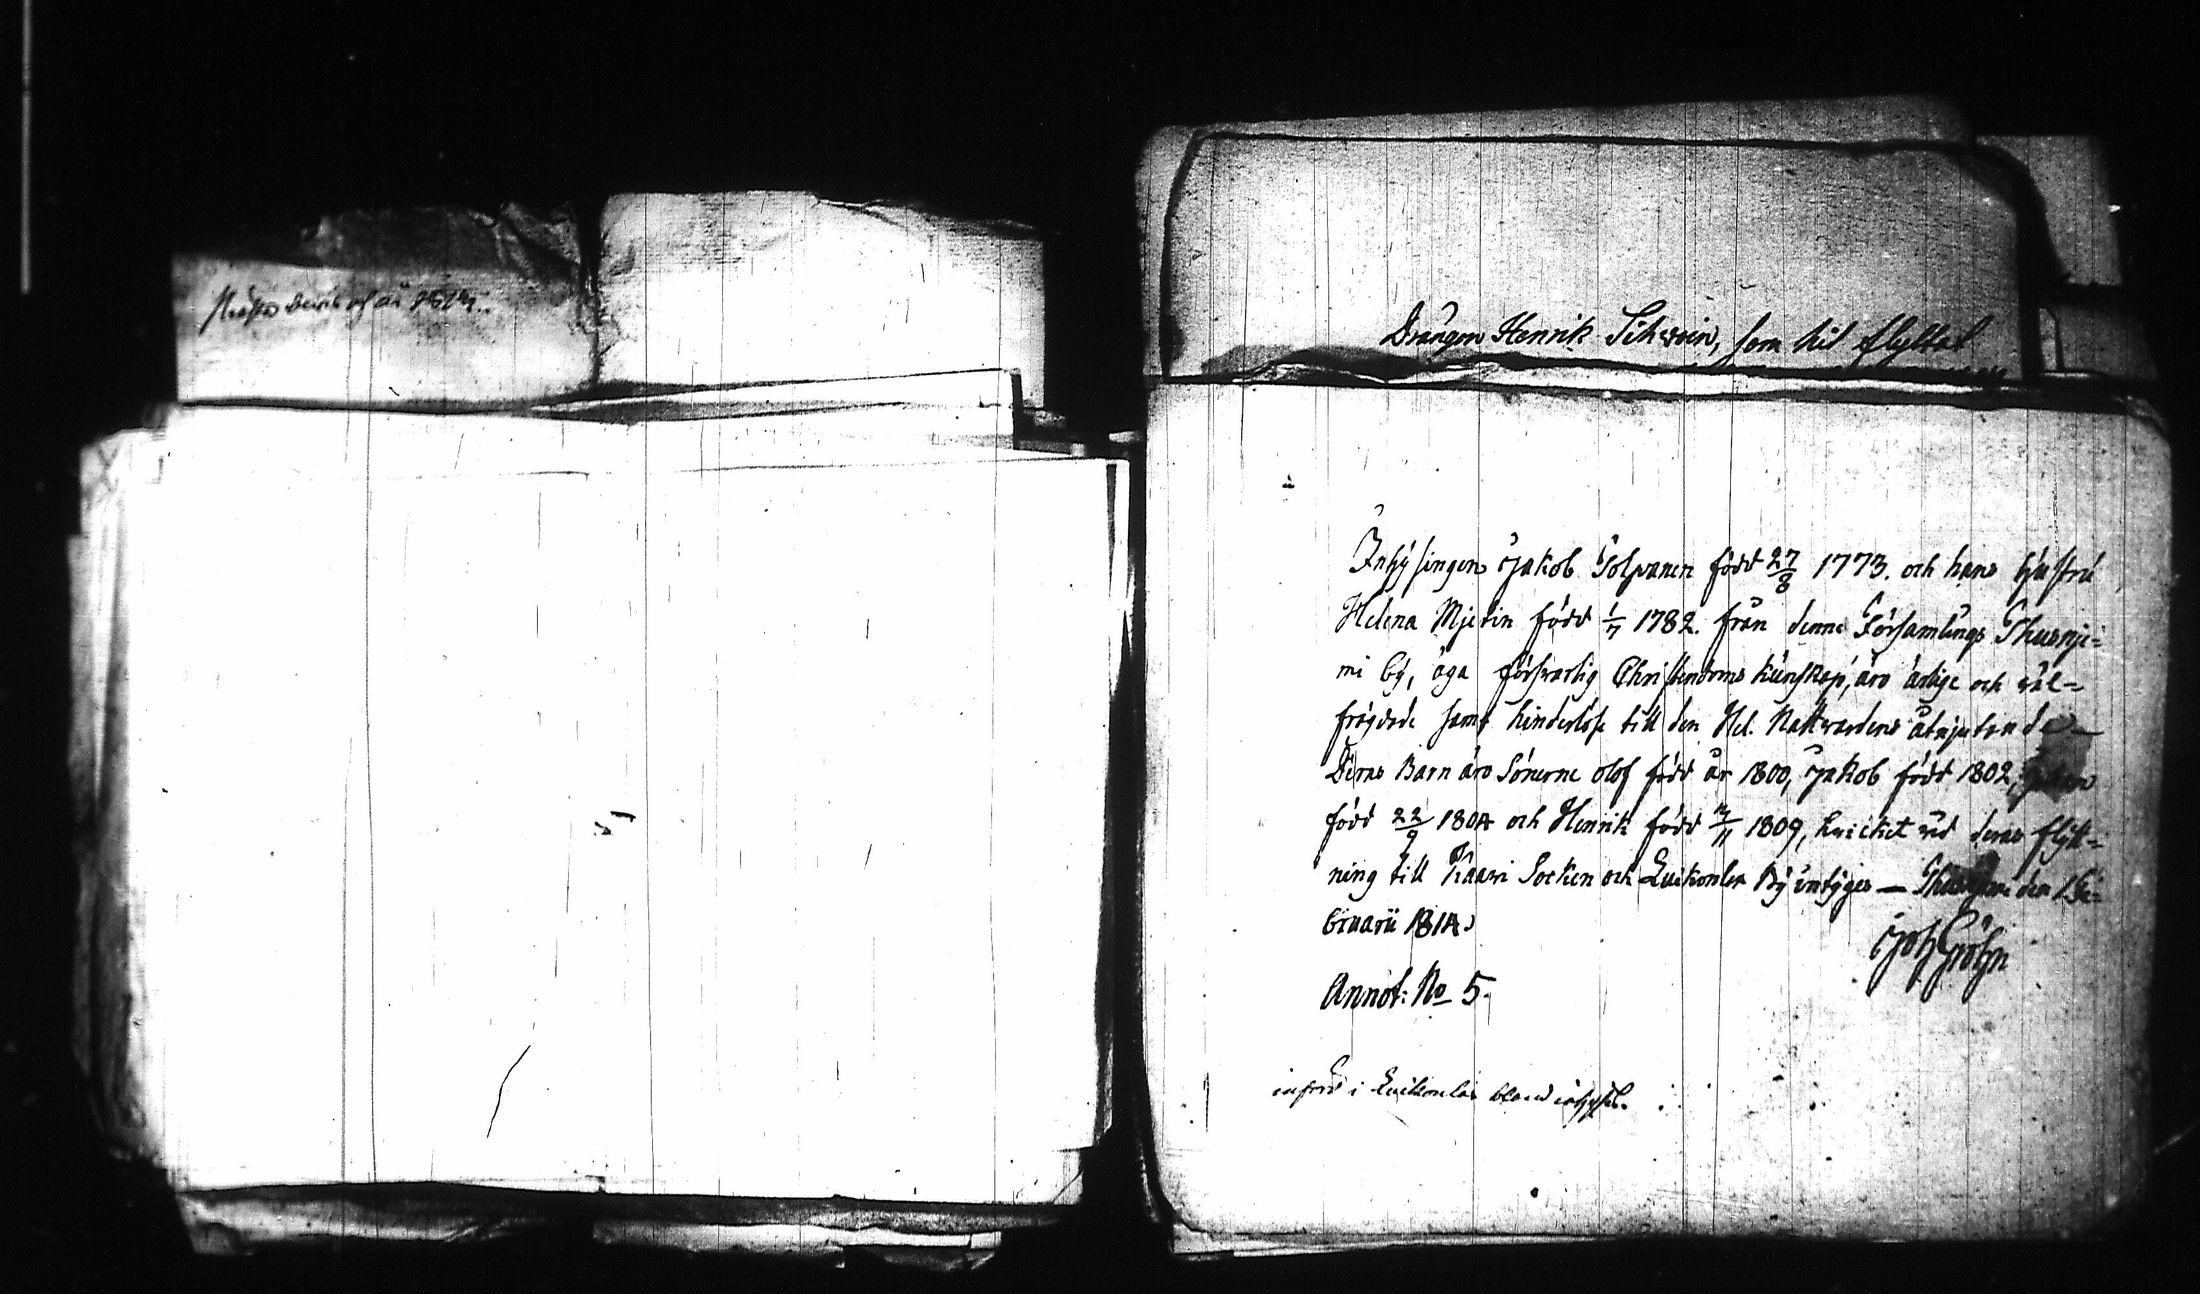 Drängen Henrik Sihvoin, som hit flyttat
Inhysingen Jakob Tolvanen född 27/8 1773. och hans hustru
Helena Mjetin född 1/7 1782. från denne Församlings Thusnje-
mi by, äga försvarlig Christendoms kunskap, äro ärlige och väl-
frägdade samt hinderlöse till den Hel. Nattvardens åtnjutande_
Deras Barn äro Sönerne Olof född år 1800, Jakob född 1802, Johan
född 22/9 1804 och Henrik född 2/11 1809, hvicket vid deras flytt-
ning till Kaavi Socken och Luikonlax By intyges — Thusnjemi den 1 Fe-
bruarii 1814.
Joh Gröhn
Annot: No 5.
införd i Luikonlax bland inhyses.